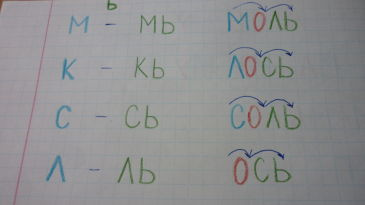 ь
М – МЬ МОЛЬ
К – КЬ ЛОСЬ
С – СЬ СОЛЬ
Л – ЛЬ ОСЬ